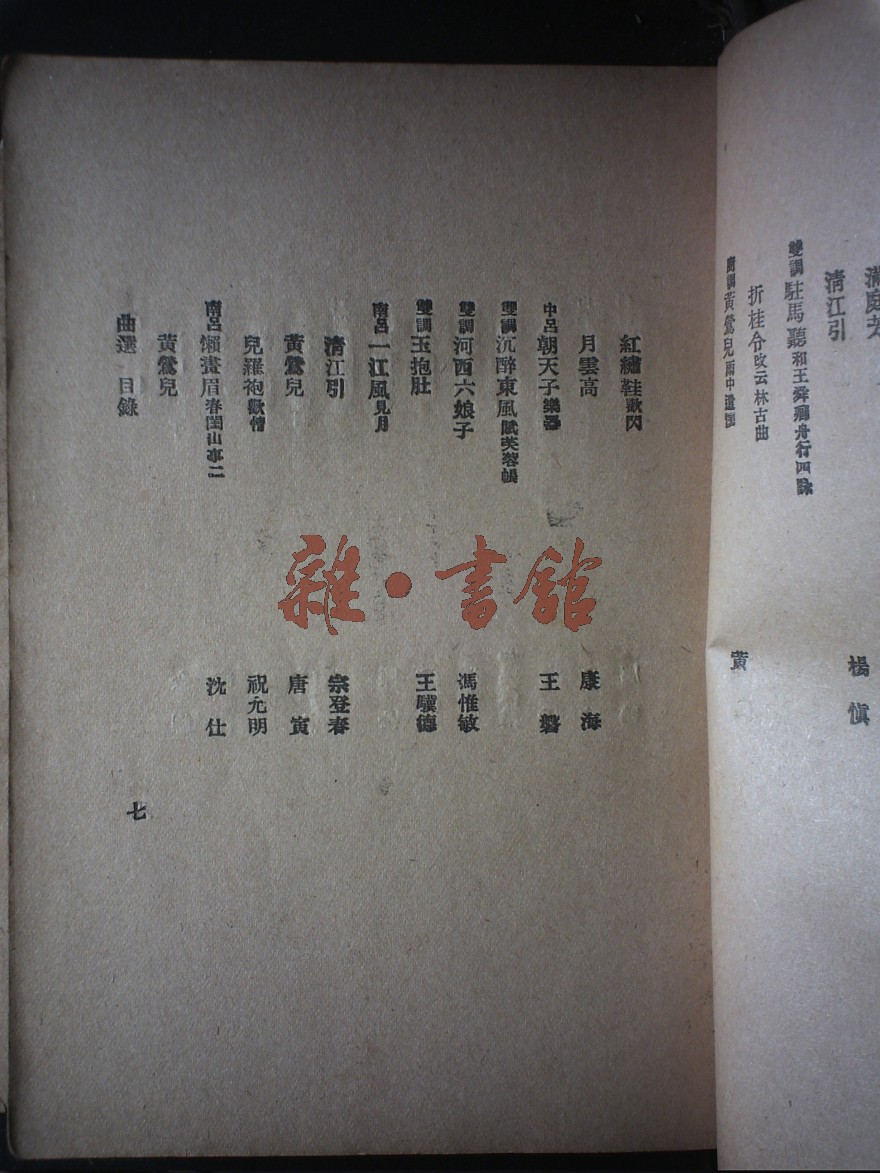 滿庭芳
清江引
楊慎
雙調駐馬聽和王舜卿舟行四詠
折桂令改云林古曲
商調黃鶯兒雨中遣懷
黃
紅繡鞋歡閃
月雲高 康海
中呂朝天子樂器 王磐
雙調沉醉東風賦芙蓉帳
雙調河西六娘子 馮惟敏
雙調玉抱肚 王驥德
南呂一江風見月
清江引 宗登春
黃鶯兒 唐寅
兒羅袍歡情 祝允明
南呂懶畫眉春閨山事二 沈仕
黃鶯兒
曲選 目錄
七
雜·書館